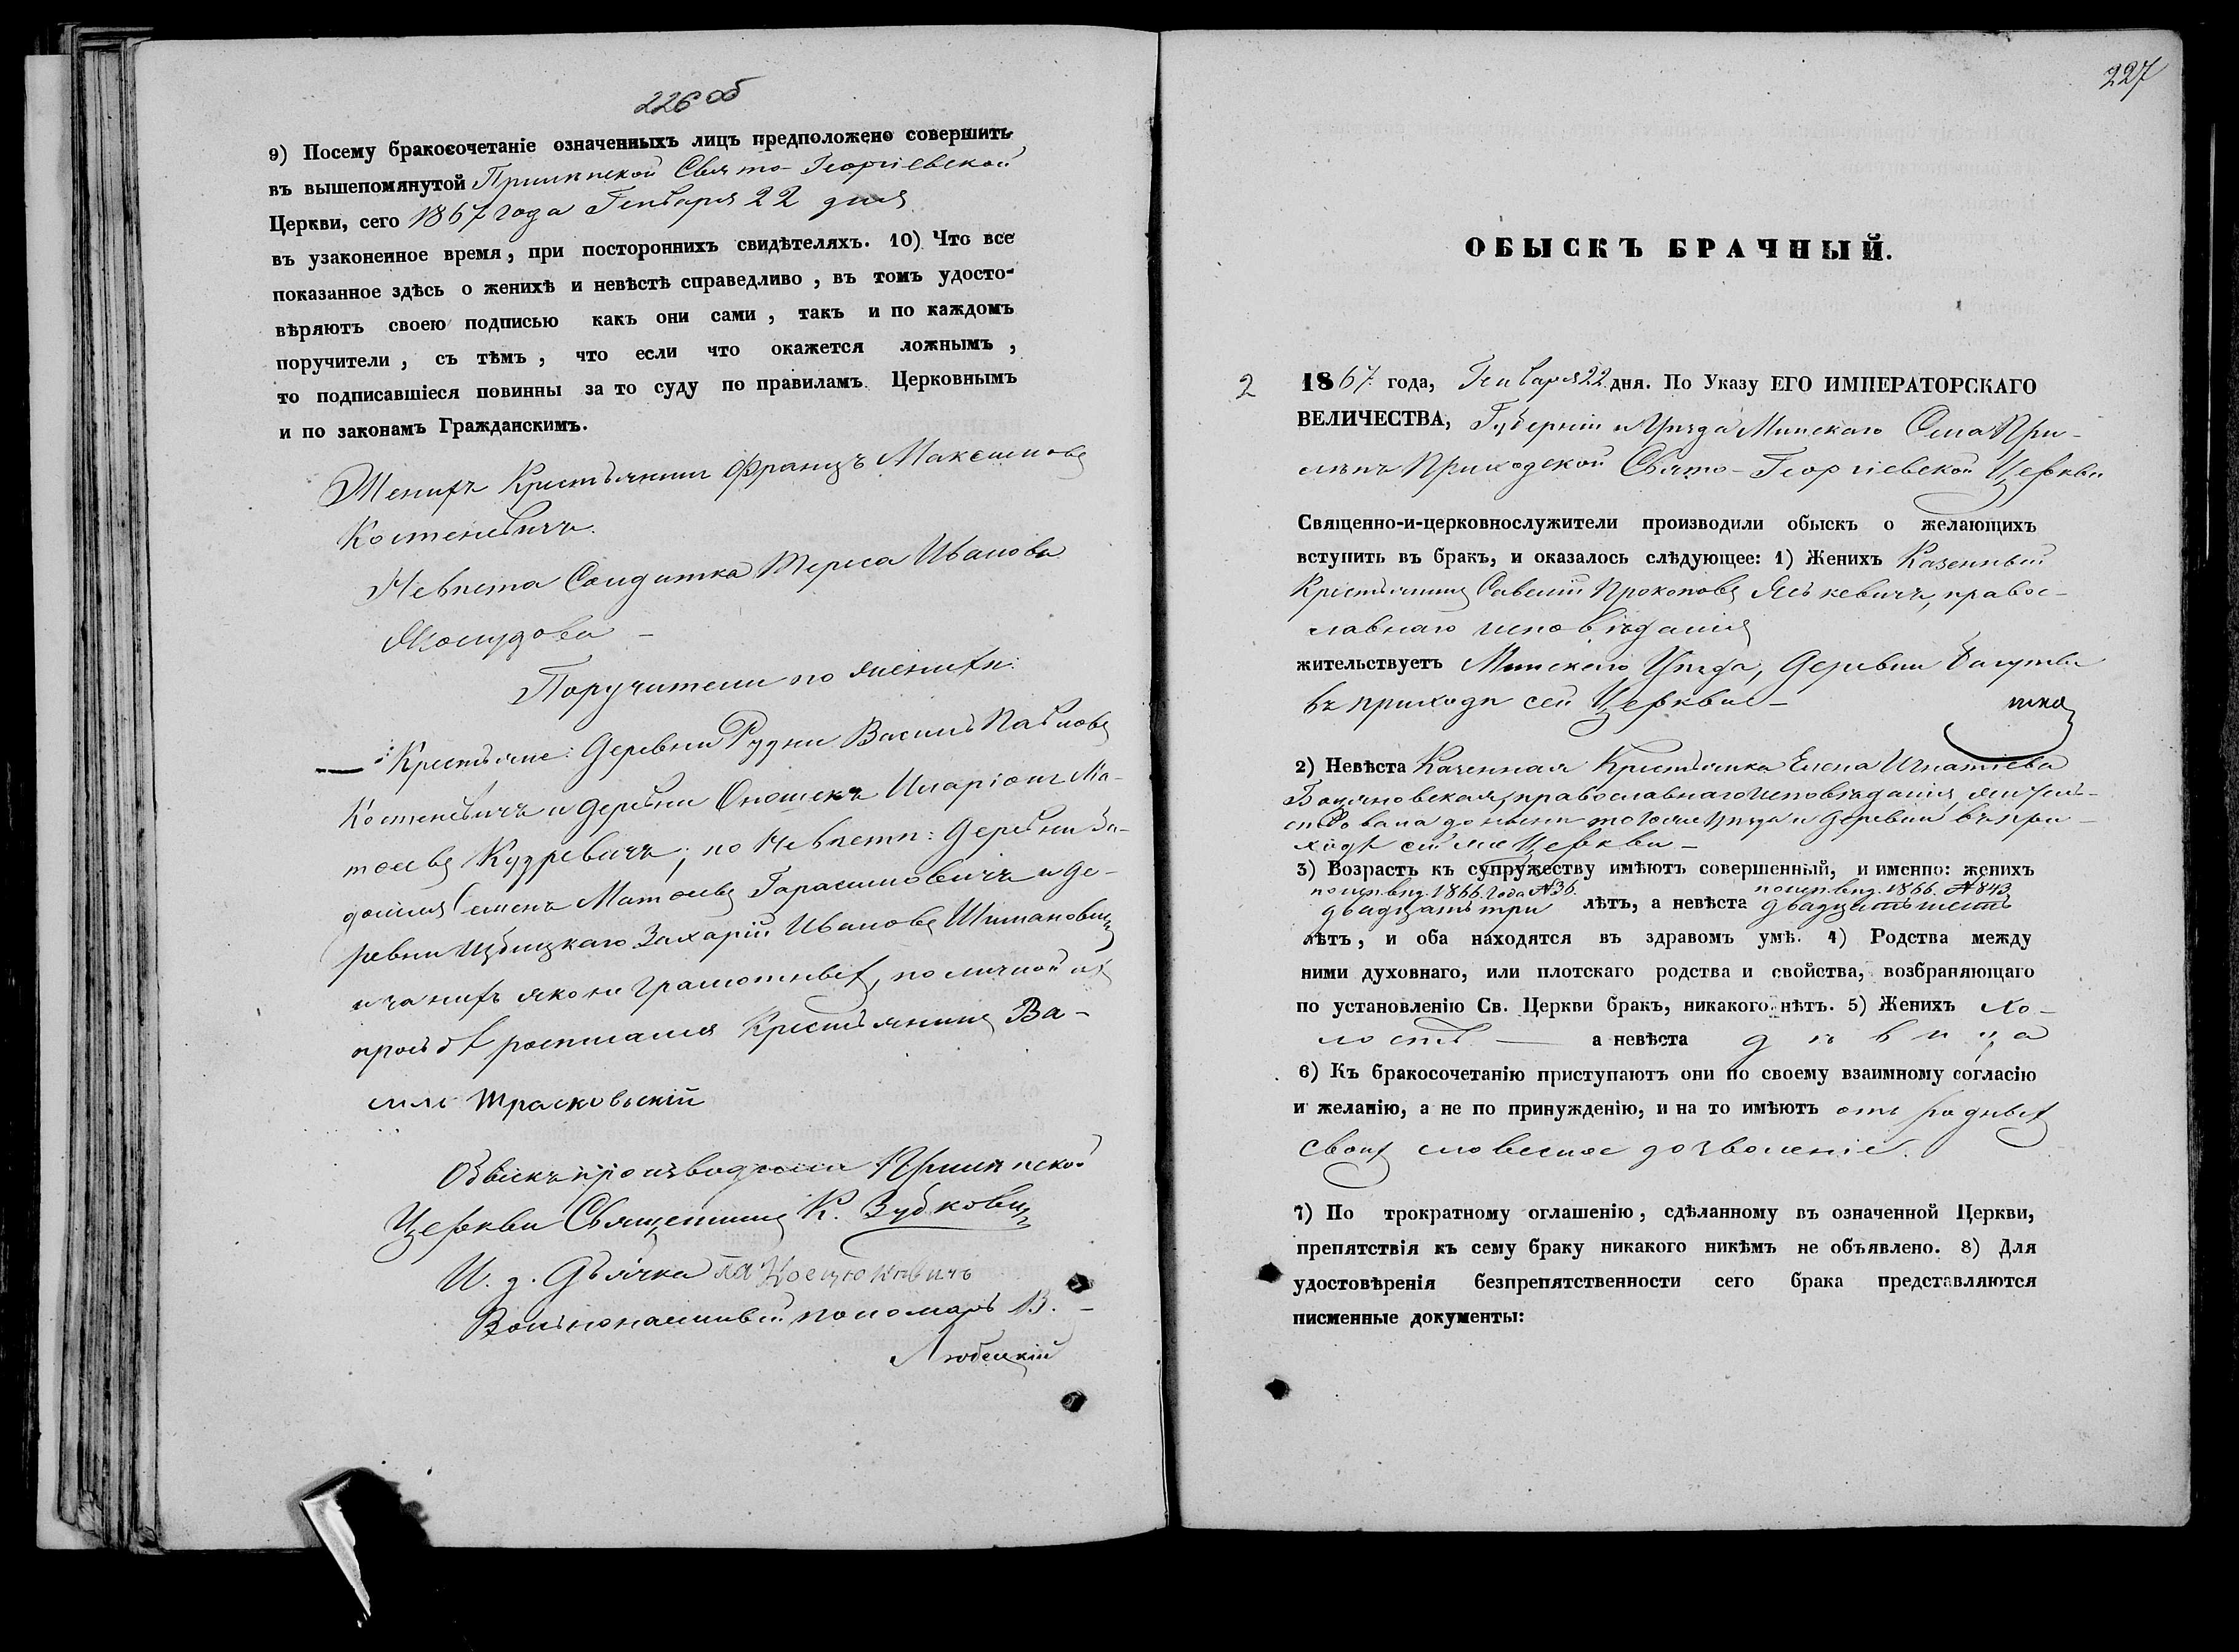 226 об
9) Посему бракосочетаніе означенныхъ лицъ предположено совершить
въ вышепомянутой Прилѣпской Свято-Георгіевской
Церкви, сего 1867 года Генваря 22 дня
въ узаконенное время, при постороннихъ свидѣтеляхъ. 10) Что все
показанное здѣсь о женихѣ и невѣстѣ справедливо, въ томъ удосто-
вѣряютъ своею подписью какъ они сами, такъ и по каждомъ
поручители, съ тѣмъ, что если что окажется ложнымъ,
то подписавшіеся повинны за то суду по правиламъ Церковнымъ
и по законамъ Гражданскимъ.
Женихъ Крестьянинъ Францъ Максимовъ
Костеневичъ.
Невѣста Солдатка Тереса Иванова
Поручители по женихѣ:
Крестьяне: Деревни Рудни Василь Павловъ
Костеневичъ и деревни Оношекъ Иларіонъ Ма-
тѳеевъ Кудревичъ; по Невѣстѣ: Деревни За-
Семенъ Матѳеевъ Гарасимовичъ и де-
ревни Захарій Ивановъ Шимановичъ
и за нихъ яко не грамотныхъ, по личной ихъ
прозьбѣ росписался Крестьянинъ Ва-
силь Трасковьскій
Обыскъ производили Прилѣпской
Церкви Священникъ К. Зубковичъ
И. д. Дьячка
Вольнонаемный пономарь В.
Любецкій
227
ОБЫСКЪ БРАЧНЫЙ.
2 1867 года, Генваря 22 дня. По Указу ЕГО ИМПЕРАТОРСКАГО
ВЕЛИЧЕСТВА, Губерніи и Уѣзда Минскаго Села При-
лѣпъ Приходской Свято-Георгіевской Церкви
Священно-и-церковнослужители производили обыскъ о желающихъ
вступить въ бракъ, и оказалось слѣдующее: 1) Женихъ Казенный
Крестьянинъ Савелій Прокоповъ Яськевичъ, правос-
лавнаго исповѣданія
жительствуетъ Минскаго Уѣзда, Деревни
въ приходѣ сей Церкви
2) Невѣста Казенная Крестьянка Елена Игнатіева
православнаго исповѣданія, житель-
ствовала до нынѣ того же Уѣзда и деревни въ при-
ходѣ сей же Церкви
3) Возрастъ къ супружеству имѣютъ совершенный, и именно: женихъ
по исп. вѣд. 1866 года №36. по исп. вѣд. 1866. №843
двадцать три лѣтъ, а невѣста двадцать шесть
лѣтъ, и оба находятся въ здравомъ умѣ. 4) Родства между
ними духовнаго, или плотскаго родства и свойства, возбраняющаго
по установленію Св. Церкви бракъ, никакого нѣтъ. 5) Женихъ хо-
лостъ а невѣста дѣвица
6) Къ бракосочетанію приступаютъ они по своему взаимному согласію
и желанію, а не по принужденію, и на то имѣютъ отъ родныхъ
своихъ словесное дозволеніе.
7) По трократному оглашенію, сдѣланному въ означенной Церкви,
препятствія къ сему браку никакого никѣмъ не объявлено. 8) Для
удостовѣренія безпрепятственности сего брака представляются
писменные документы: